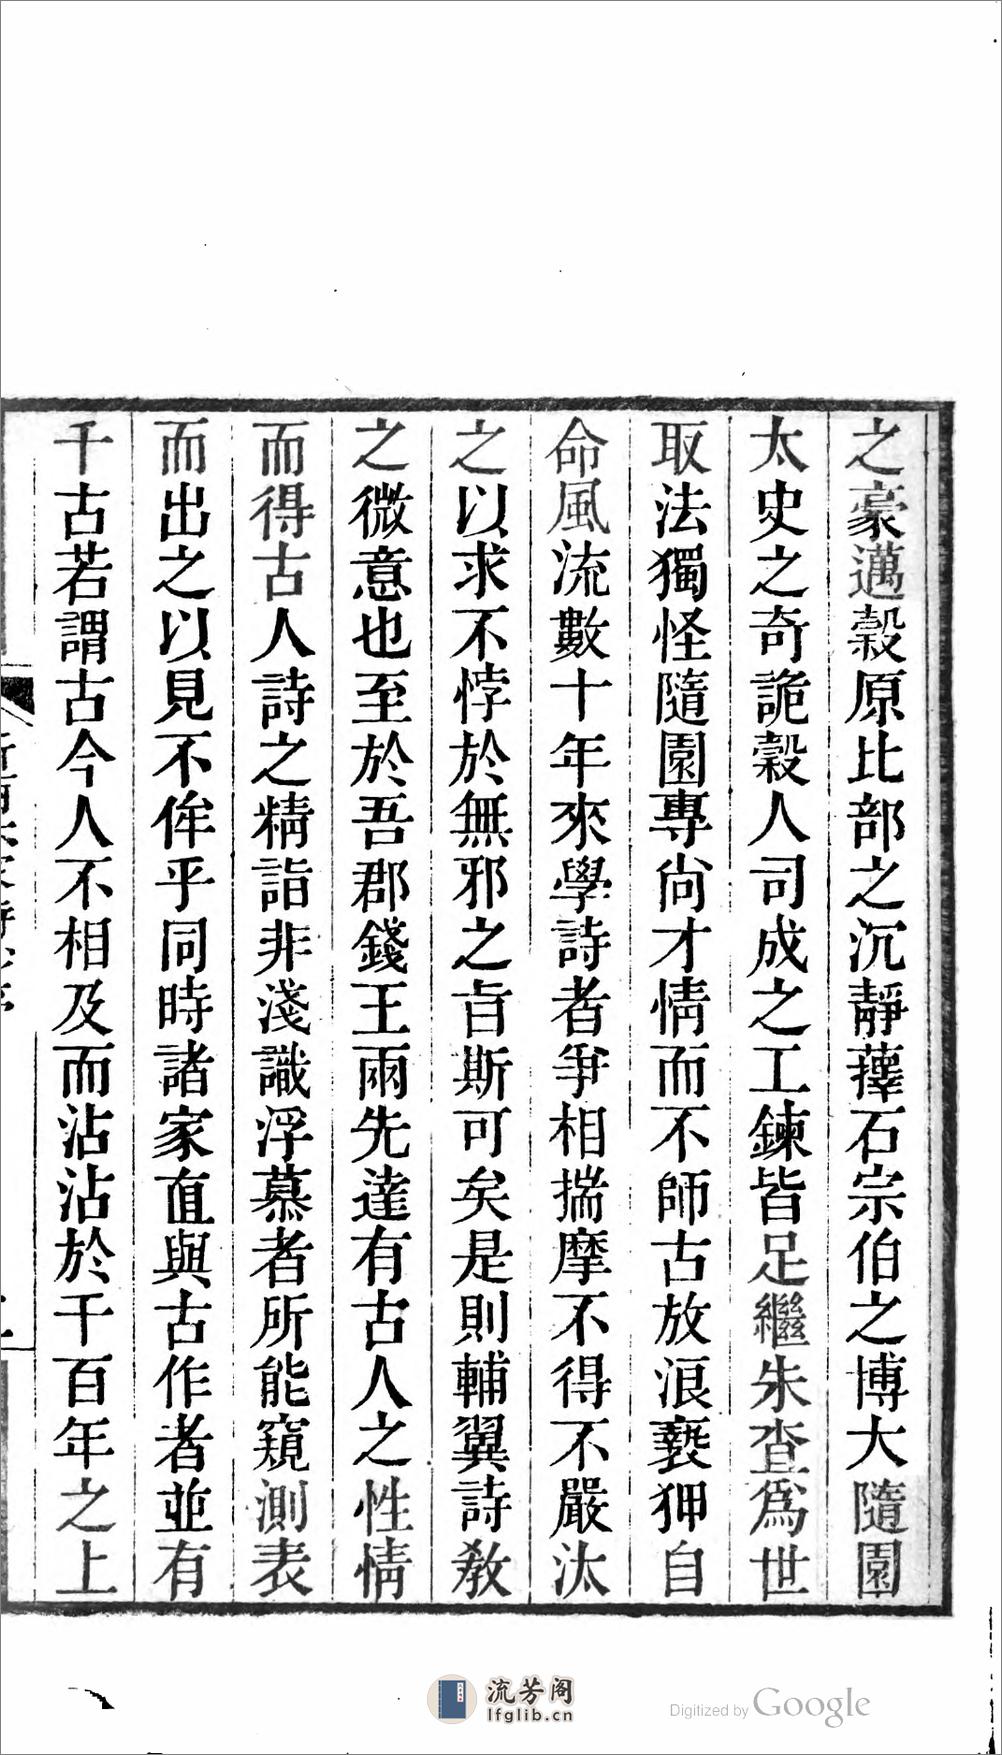 之豪邁穀原比部之沉靜蘀石宗伯之博大隨園
太史之奇詭穀人司成之工鍊皆足繼朱查爲世
取法獨怪隨園專尙才情而不師古放浪褻狎自
命風流數十年來學詩者爭相揣摩不得不嚴汰
之以求不悖於無邪之旨斯可矣是則輔翼詩敎
之微意也至於吾郡錢王兩先達有古人之性情
而得古人詩之精詣非淺識浮慕者所能窺測表
而出之以見不侔乎同時諸家直與古作者並有
千古若謂古今人不相及而沾沾於千百年之上
流芳阁
lfglib.cn
Digitized by Google